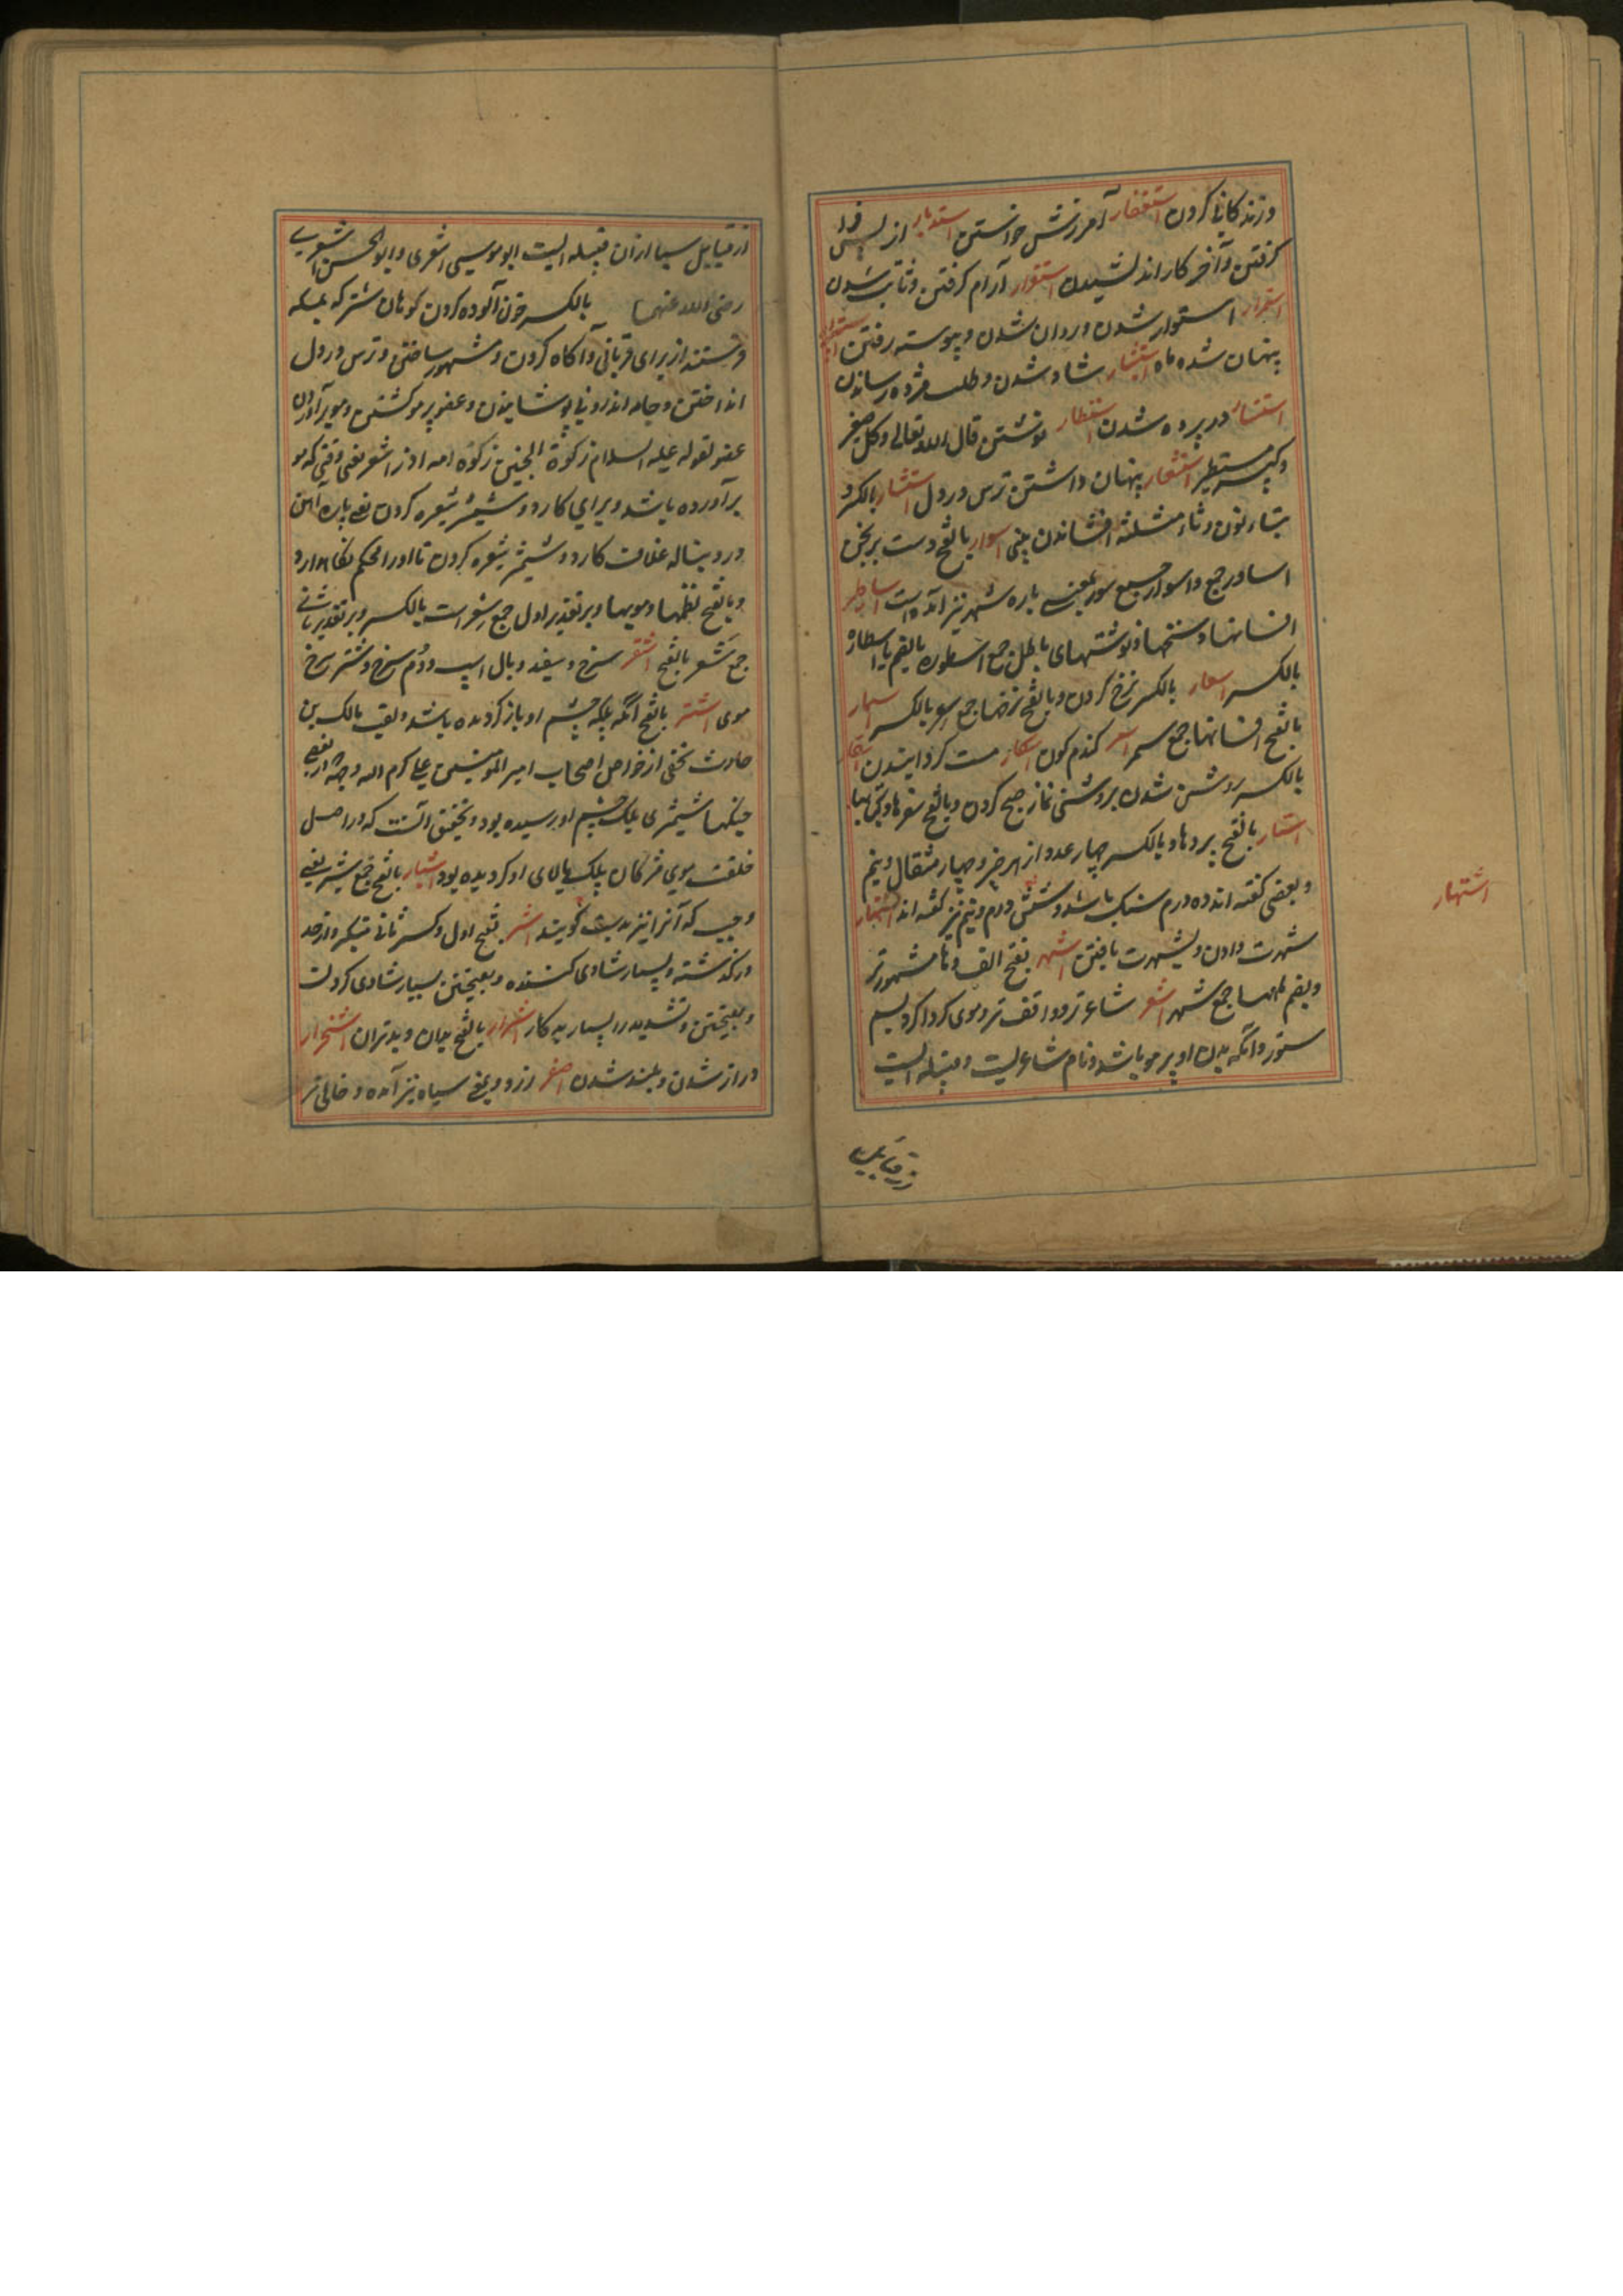 و زندکانی کردن استغفار آمرزش خواستن استدبار از پس فرا
کرفتن و آخر کار اندیشیدن استقرار آرام کرفتن و ثابت شدن
استمرار استوار شدن و روان شدن و پیوسته رفتن استسرار
پنهان شده ماه استبشار شاد شدن و طلب مژده رساندن
استتار در پرده شدن استطار نوشتن قال الله تعالی و کل صغیر
و کبیر مستطر استشعار پنهان داشتن ترس در دل استنثار بالکسر و
بتاء نون و ثاء مثلثه افشاندن بینی اسوار بالفتح دست برنجن
اساور جمع و اسوار جمع سور بمعنی باره شهر نیز آمده است اساطیر
افسانها و سخنها و نوشتهای باطل جمع اسطوره بالضم یا اسطاره
بالکسر اسعار بالکسر نرخ کردن و بالفتح نرخها جمع سعر بالکسر اسمار
بالفتح افسانها جمع سمر اسمر کندم کون اسکار مست کردانیدن اسفار
بالکسر روشن شدن بروشنی نماز صبح کردن و بالفتح سفرها و کتابها
استار بالفتح پردها و بالکسر چهار عدد از هر چیز و چهار مثقال و نیم
و بعضی کفته اند ده درم سنک باشد و شش درم و نیم نیز کفته اند اشتهار
شهرت دادن و شهرت یافتن اشهر بفتح الف و ها مشهورتر
و بضم ها ماهها جمع شهر اشعر شاعرتر و واقف تر و موی کرداکرد سم
ستور و آنکه بدن او پر مو باشد و نام شاعریست و قبیله ایست
از قبایل
اشتهار
از قبایل سبا ازان قبیله ایست ابو موسی اشعری و ابو الحسن اشعری
رضی الله عنهما بالکسر خون آلوده کردن کوهان شتر که بمکه
فرستند از برای قربانی و آکاه کردن و مشهور ساختن و ترس در دل
انداختن و جامه اندرونی پوشانیدن و عضو پر مو کشتن و مو برآوردن
عضو لقوله علیه السلام زکوة الجنین زکوة امه اذا اشعر یعنی وقتی که مو
برآورده باشد و برای کارد و شمشیر شعیره کردن یعنی پاره آهن
در دنباله غلاف کارد و شمشیر شعیره کردن تا او را محکم نکاهدارد
و بالفتح نظمها و مویها و بر تقدیر اول جمع شعر است بالکسر و بر تقدیر ثانی
جمع شعر بالفتح اشقر سرخ و سفید و یال اسپ و دم سرخ و شتر سرخ
موی اشتر بالفتح آنکه پلک چشم او باز کردیده باشد و لقب مالک بن
حارث نخعی از خواص اصحاب امیر المؤمنین علی کرم الله وجهه در بعضی
جنکها شمشیری بپلک چشم او رسیده بود و تحقیق آنست که در اصل
خلقت موی مژکان پلک بالای او کردیده بود اشبار بالفتح جمع شبر یعنی
وجب که آنرا نیز بدست کویند اشر بفتح اول و کسر ثانی متکبر و از حد
در کذشته و بسیار شادی کننده و بفتحتین بسیار شادی کردن
و بفتحتین و تشدید را بسیار بدکار اشرار بالفتح بدان و بدتران اشخرار
دراز شدن و بلند شدن اصفر زرد و بمعنی سیاه نیز آمده و خالی تر